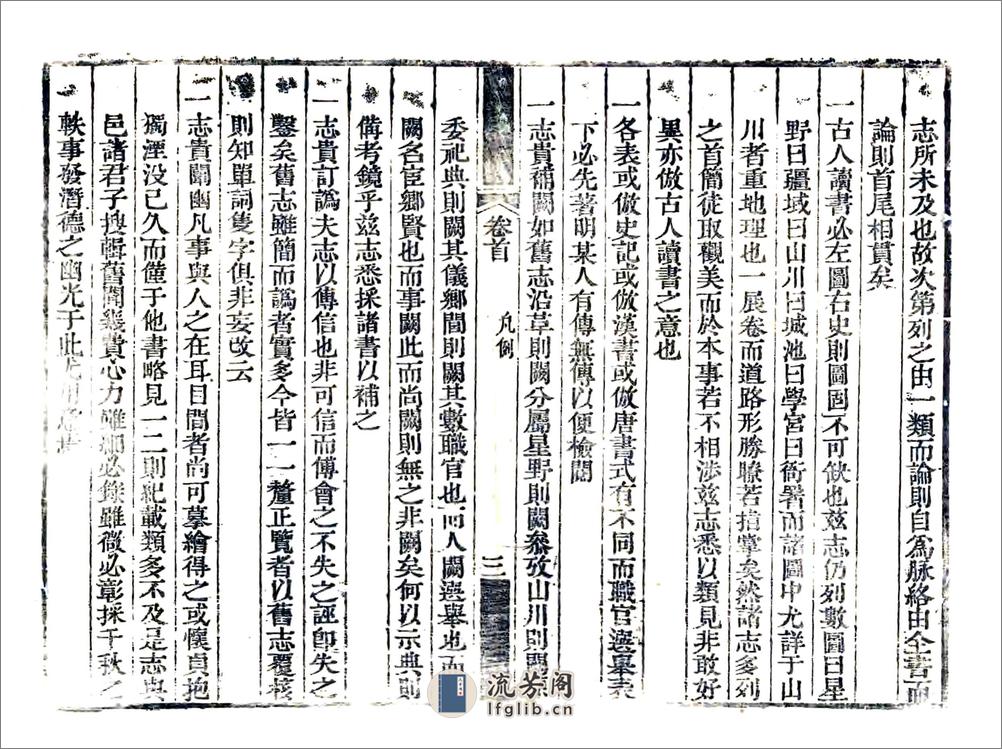 志所未及也故次第列之由一類而論則自爲脉絡由全書而
論則首尾相貫矣
一古人讀書必左圖右史則圖固不可缺也兹志仍列數圖曰星
野曰疆域曰山川曰城池曰學宮曰衙署而諸圖中尤詳于山
川者重地理也一展卷而道路形勝瞭若指掌矣然諸志多列
之首簡徒取觀美而於本事若不相涉兹志悉以類見非敢好
異亦倣古人讀書之意也
一各表或倣史記或倣漢書或倣唐書式有不同而職官選舉表
下必先著明某人有傳無傳以便檢閱
一志貴補闕如舊志沿革則闕分屬星野則闕叅攷山川則闕
卷首 凡例 三
委祀典則闕其儀鄉閭則闕其數職官也而人闕選舉也而
闕名宦鄉賢也而事闕此而尚闕則無之非闕矣何以示典則
備考鏡乎兹志悉採諸書以補之
一志貴訂譌夫志以傳信也非可信而傅會之不失之誣卽失之
鑿矣舊志雖簡而譌者實多今皆一一釐正覽者以舊志覆核
則知單詞隻字俱非妄改云
一志貴闡幽凡事與人之在耳目間者尚可摹繪得之或懷貞抱
獨湮没已久而僅于他書略見一二則紀載類多不及是志與
邑諸君子搜輯舊聞裒費心力雖必錄雖微必彰採千秋之
軼事發潛德之幽光于此尤
流芳阁
lfglib.cn